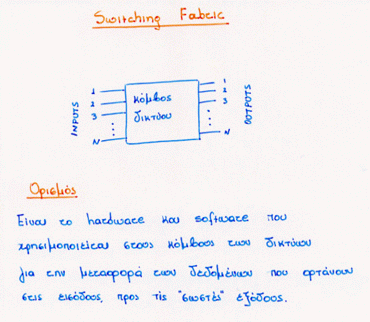 Switching Fabric
INPUTS
1
2
3
N
κόμβος
δικτύου
1
2
3
N
OUTPUTS
Ορισμός
Είναι το hardware και software που
χρησιμοποιείται στους κόμβους των δικτύων
για την μεταφορά των δεδομένων που φτάνουν
στις εισόδους, προς τις "σωστές" εξόδους.